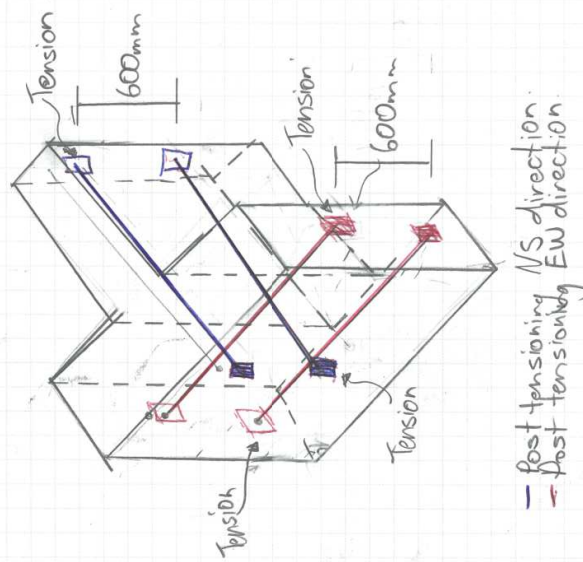 Tension
600mm
Tension
600mm
Tension
Tension
Post tensioning NS direction.
Post tensioning EW direction.